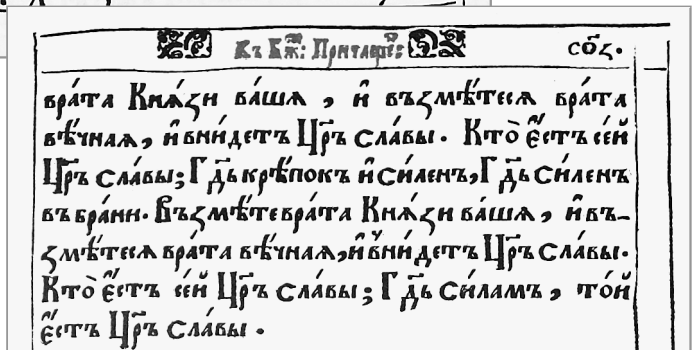 Къ Бж҃: Причащен҃: со҃з.
вра́та Кнѧ́зи ва́шѧ , и҆ въꙁмѣ́тесѧ вра́та
вѣ́чнаѧ, и҆ вни́детъ Цр҃ъ сла́вы. Кто̀ є҆́стъ се́й
Цр҃ъ сла́вы; Гдⷭ҇ь крѣ́покъ и҆ си́ленъ, Гдⷭ҇ь си́ленъ
въ бра́ни. Въꙁмѣ́те вра́та Кнѧ́зи ва́шѧ, и҆ въ-
ꙁмѣ́тесѧ вра́та вѣ́чнаѧ, и҆ вни́детъ Цр҃ъ сла́вы.
Кто̀ є҆́стъ се́й Цр҃ъ сла́вы; Гдⷭ҇ь си́ламъ, то́й
є҆́стъ Цр҃ъ сла́вы .